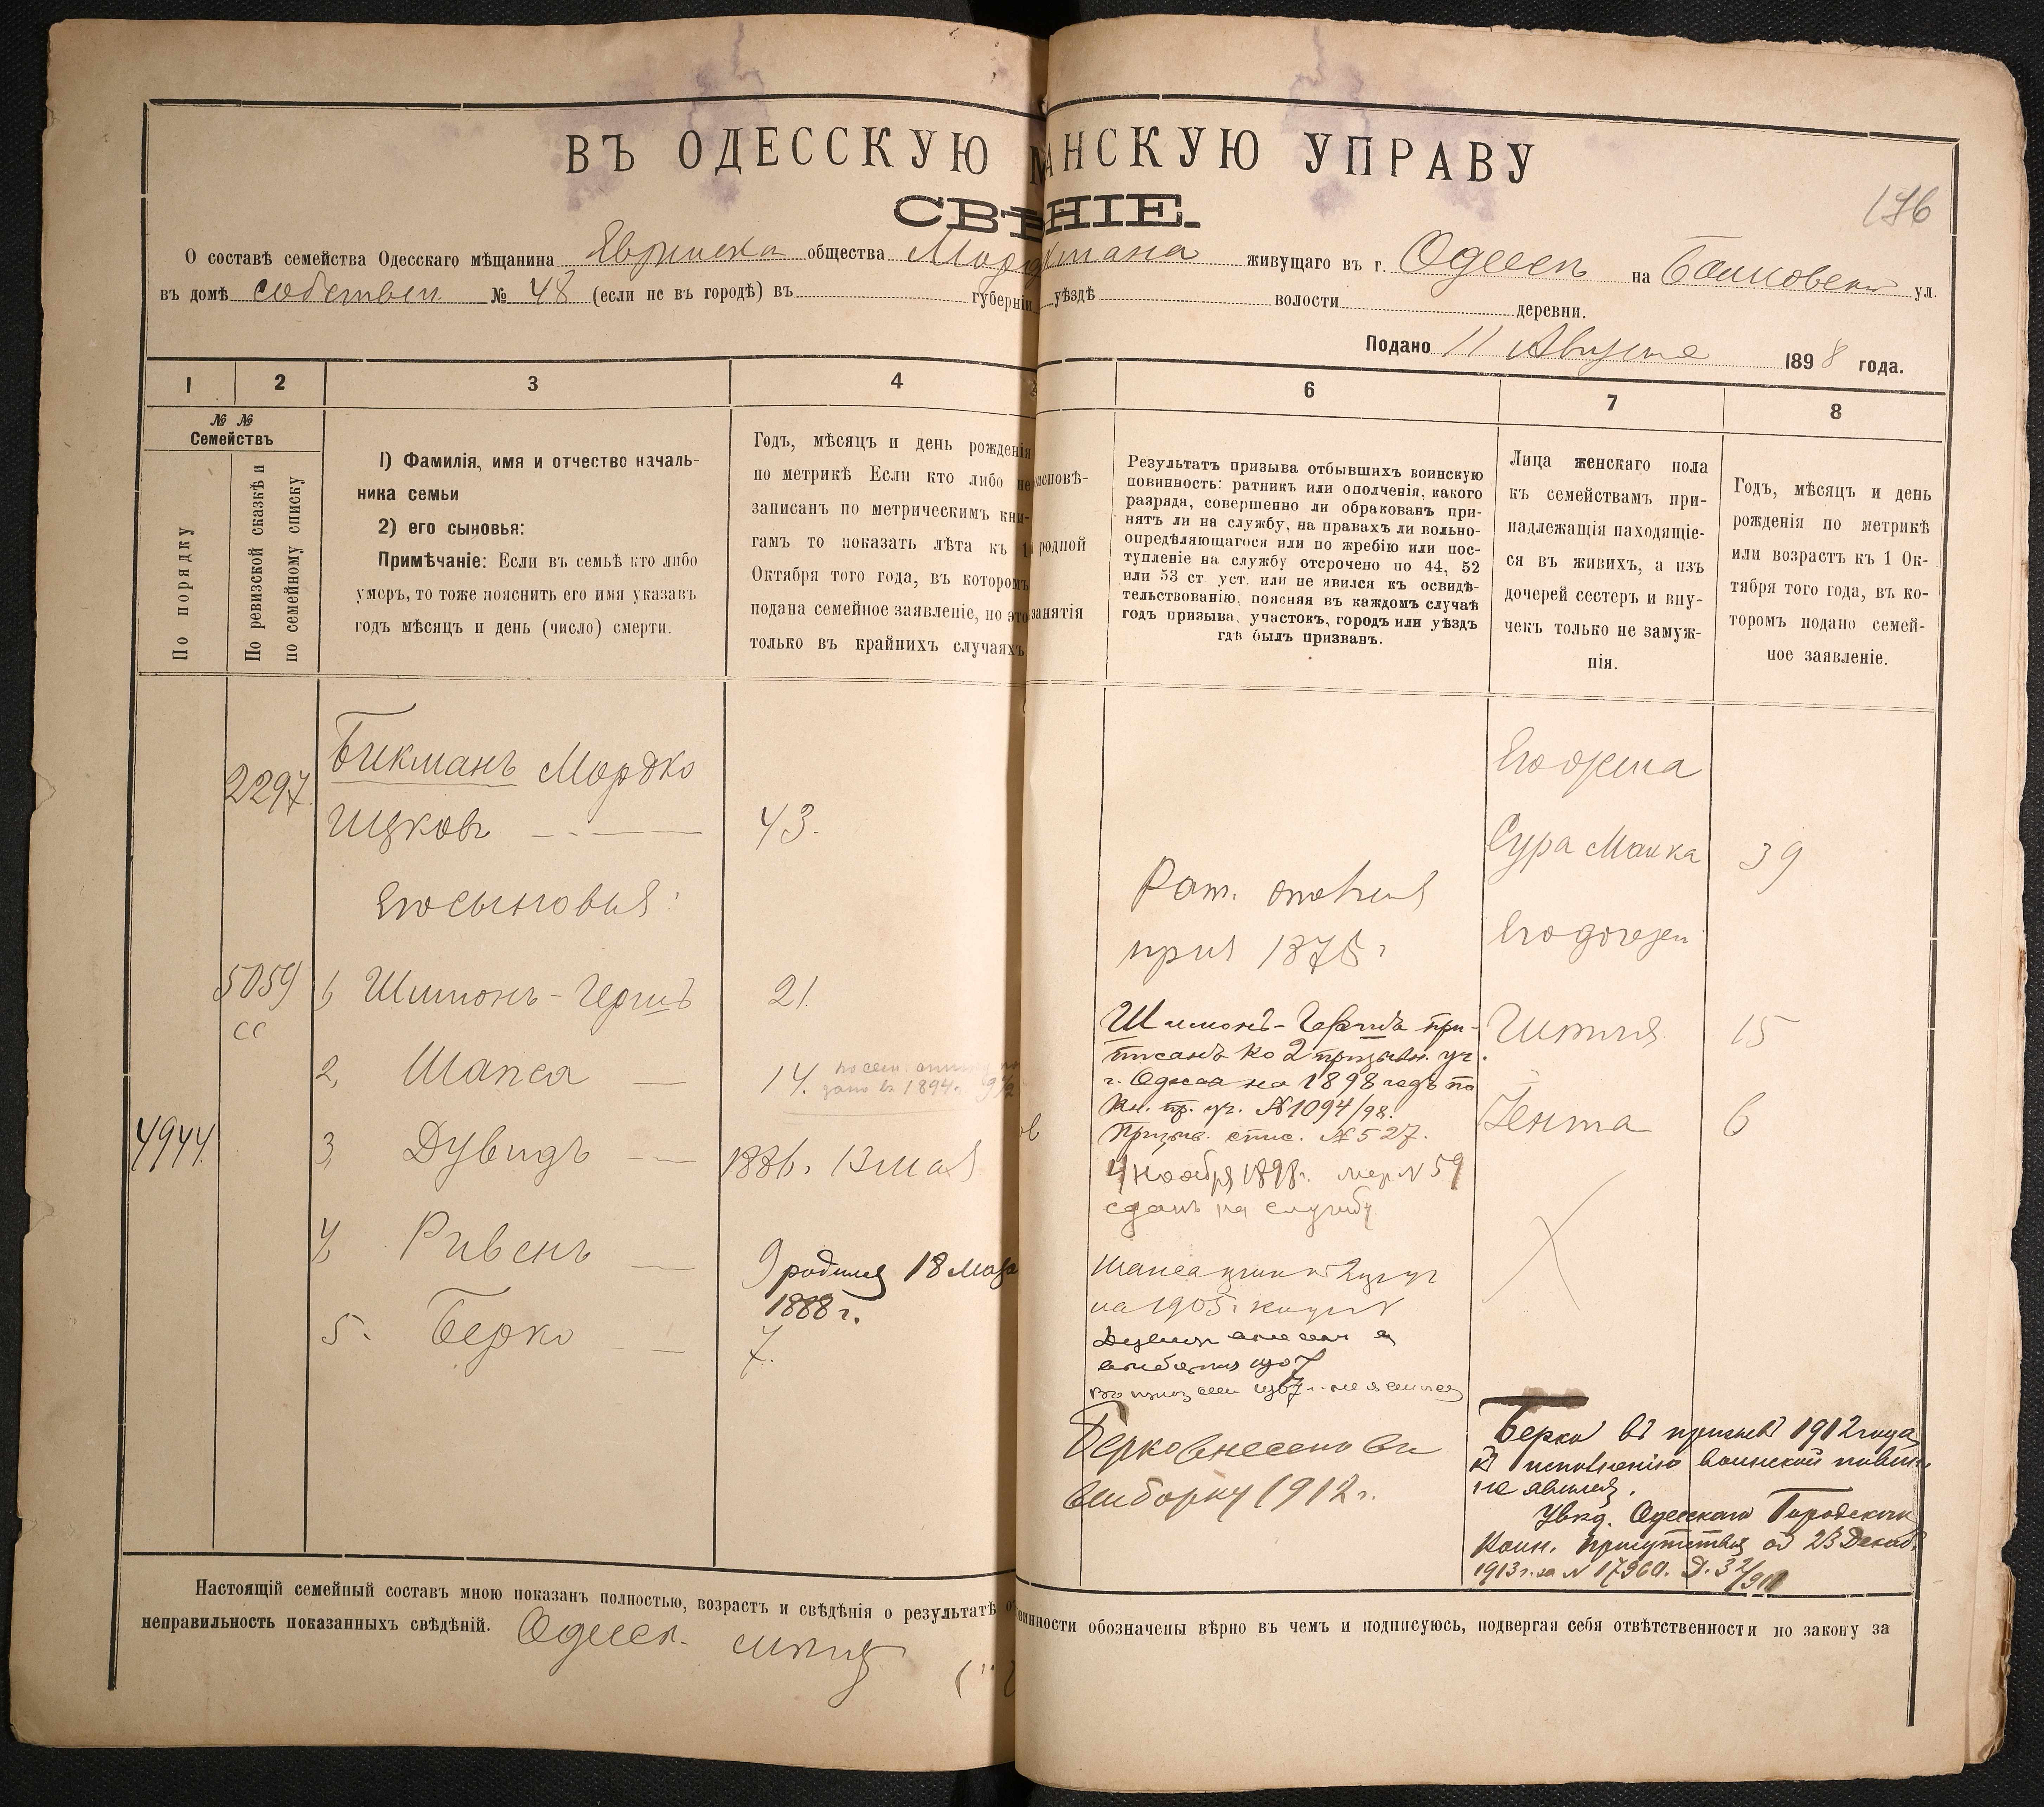 ВЪ ОДЕССКУЮ М АНСКУЮ УПРАВУ
СВѢ НІЕ.
196
О составѣ семейства Одесскаго мѣщанина общества живущаго въ г. Одессѣ на ул.
въ домѣ собствен № 48 (если не въ городѣ) въ губерніи уѣздѣ волости деревни.
Подано 11 Августа 1898 года.
1 2 3 4 6 7 8
№ №
Семействъ
По порядку
По ревизской сказкѣ и
по семейному списку
1) Фамилія, имя и отчество началь-
ника семьи
2) его сыновья:
Примѣчаніе: Если въ семьѣ кто либо
умеръ, то тоже пояснить его имя указавъ
годъ мѣсяцъ и день (число) смерти.
Годъ, мѣсяцъ и день рожденія
по метрикѣ Если кто либо не
записанъ по метрическимъ кни-
гамъ то показать лѣта къ 1
Октября того года, въ которомъ
подана семейное заявленіе, но это
только въ крайнихъ случаяхъ
исповѣ-
родной
занятія
Результатъ призыва отбывшихъ воинскую
повинность: ратникъ или ополченія, какого
разряда, совершенно ли обракованъ при-
нятъ ли на службу, на правахъ ли вольно-
опредѣляющагося или по жребію или пос-
тупленіе на службу отсрочено по 44, 52
или 53 ст уст. или не явился къ освидѣ-
тельствованію, поясняя въ каждомъ случаѣ
годъ призыва, участокъ, городъ или уѣздъ
гдѣ былъ призванъ.
Лица женскаго пола
къ семействамъ при-
надлежащія находящіе-
ся въ живихъ, а изъ
дочерей сестеръ и вну-
чекъ только не замуж-
нія.
Годъ, мѣсяцъ и день
рожденія по метрикѣ
или возрастъ къ 1 Ок-
тября того года, въ ко-
торомъ подано семей-
ное заявленіе.
2297
Бикманъ Мордко
Ицковъ
43.
Его сыновья:
5059
СС
1, Шимонъ-Гершъ
21.
2, Шапса
14.
4944
3, Дувидъ
1886г. 13 мая
4, Ривенъ
9 родился 18 Мая
1888 г.
5. Берко
7.
Рат. ополченія
1875 г
Шимонъ-Гершъ при-
писанъ ко 2 призывн. уч.
г. Одесса на 1898 годъ по
Кн. пр. уч. №1094/98.
Призыв. спис. №527.
4 Ноября 1898г. № 59
сданъ на службу
Шапса 2
на 1905г.
1907
1907 г. не явился
Берко внесенъ въ
выборку 1912 г.
Его жена
Сура Малка 39
Его дочери
15
Гента 6
Берко въ призывѣ 1912 года
къ исполненію воинской повин.
не явился.
Увед. Одесскаго Городского
Воин. присутствія от 23 Декаб.
1913 г. за № 17960.
Настоящій семейный составъ мною показанъ полностью, возрастъ и свѣдѣнія о результатѣ о винности обозначены вѣрно въ чемъ и подписуюсь, подвергая себя отвѣтственности по закону за
неправильность показанныхъ свѣдѣній.